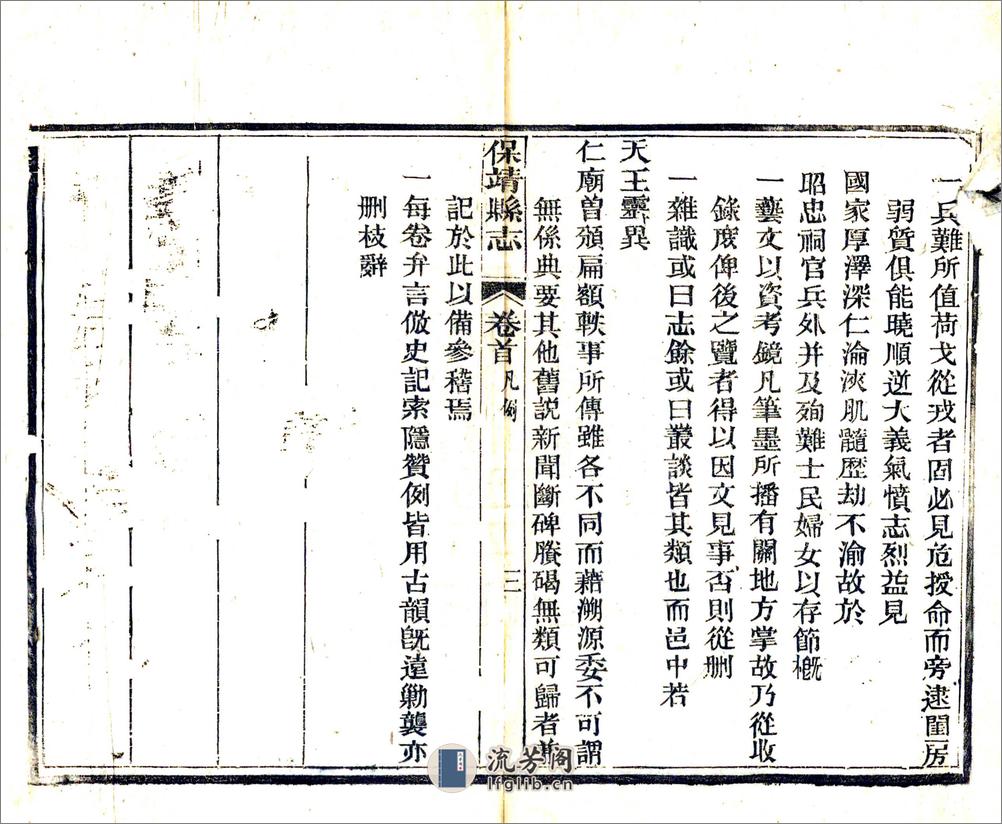 一兵難所值荷戈從戎者固必見危授命而旁逮閨房
弱質俱能曉順逆大義氣憤志烈益見
國家厚澤深仁淪浹肌髓歷劫不渝故於
昭忠祠官兵外并及殉難士民婦女以存節槪
一藝文以資考鏡凡筆墨所播有關地方掌故乃從收
錄庶俾後之覽者得以因文見事否則從删
一雜識或曰志餘或曰叢談皆其類也而邑中若
天王靈異
仁廟曾頒扁額軼事所傳雖各不同而藉溯源委不可謂
無係典要其他舊說新聞斷碑賸碣無類可歸者並
保靖縣志 卷首 凡例 三
記於此以備參稽焉
一每卷弁言倣史記索隱贊例皆用古韻旣遠勦襲亦
删枝辭
流芳阁
lfglib.cn